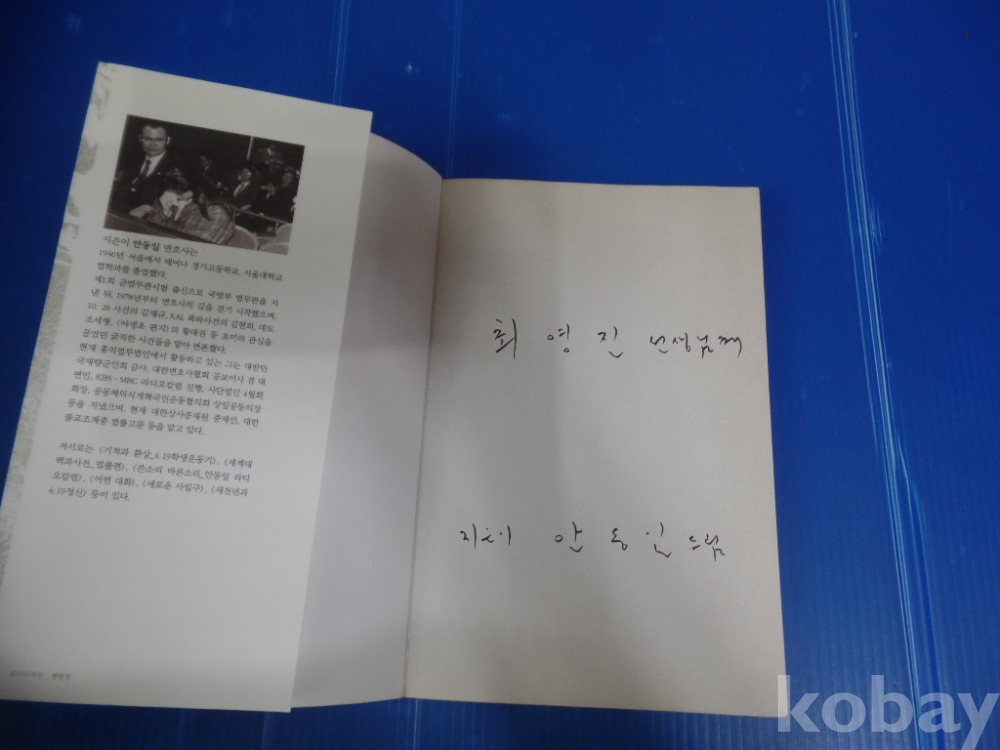 지은이 안동일 변호사는
1940년 서울에서 태어나 경기고등학교, 서울대학교
법학과를 졸업했다.
제1회 군법무관시험 출신으로 국방부 법무관을 지
낸 뒤, 1978년부터 변호사의 길을 걷기 시작했으며,
10. 26 사건의 김재규, KAL 폭파사건의 김현희, 대도
조세형, 〈야생초 편지〉의 황대권 등 초미의 관심을
끌었던 굵직한 사건들을 맡아 변론했다.
현재 홍익법무법인에서 활동하고 있는 그는 대한민
국재향군인회 감사, 대한변호사협회 공보이사 겸 대
변인, KBS · MBC 라디오칼럼 진행, 사단법인 4월회
회장, 공동체의식개혁국민운동협의회 상임공동의장
등을 지냈으며, 현재 대한상사중재원 중재인, 대한
불교조계종 법률고문 등을 맡고 있다.
저서로는 〈기적과 환상_4.19학생운동기〉, 〈세계대
백과사전_법률편〉, 〈쓴소리 바른소리_안동일 라디
오칼럼〉, 〈어떤 대화〉, 〈새로운 사일구〉, 〈새천년과
4.19정신〉 등이 있다.
최 영 진 선생님께
안 동 일 드림
kobay